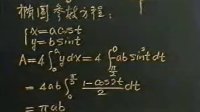 椭圆参数方程:
{x=acost
y=bsint
A=4∫₀ᵃydx=4∫ab sin²tdt
=4ab∫₀^(π/2) (1-cos2t)/2 dt
=πab